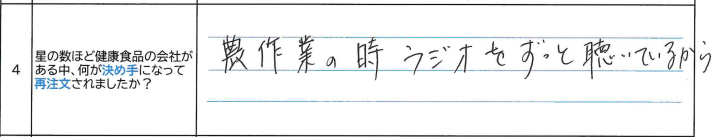 4
星の数ほど健康食品の会社が
ある中、何が決め手になって
再注文されましたか？
農作業の時 ラジオをずっと聴いているから